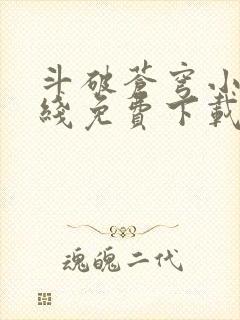 斗破苍穹小
綫免費下載
魂魄二代